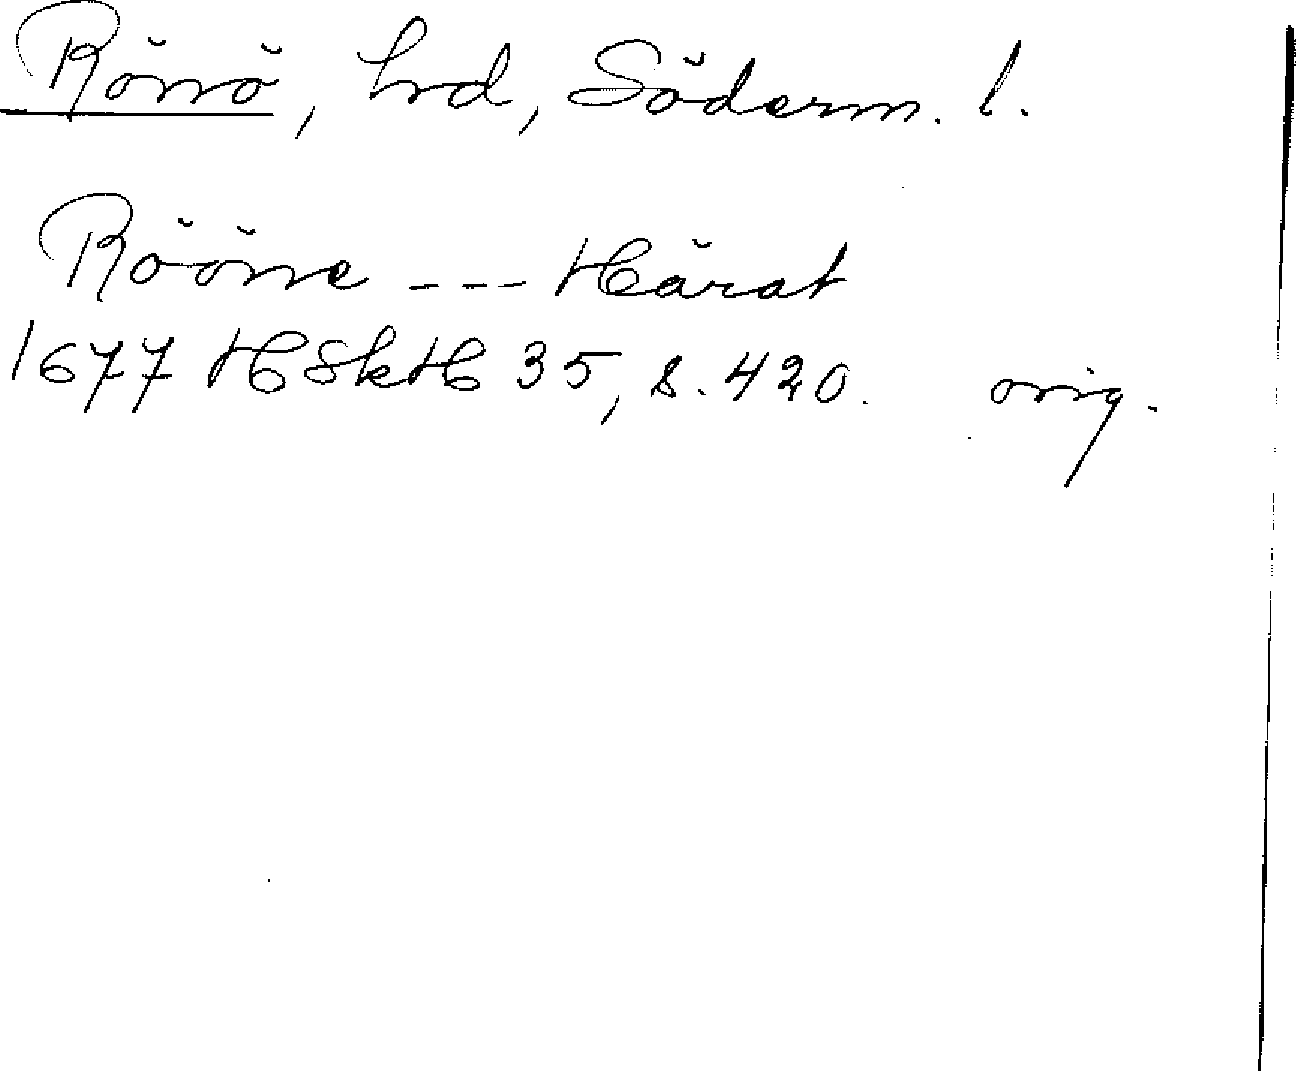 Rönö, hrd, Söderm. l.
Rööne --- Härat
1677 HSkH 35, s. 420. orig.